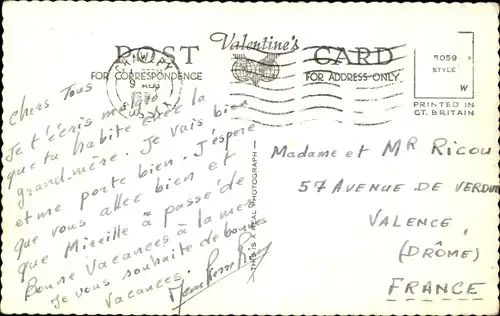 POST Valentine's CARD
FOR CORRESPONDENCE FOR ADDRESS ONLY
5059
STYLE
W
PRINTED IN
GT. BRITAIN
THIS IS A REAL PHOTOGRAPH
Chers Tous
Je t'écris malgré
que tu habite chez la
grand-mère. Je vais bien
et me porte bien. J'espère
que vous allez bien et
que Mireille a passé de
Bonne Vacances à la mer
Je vous souhaite de bonnes
Vacances.
Jean Pierre
Madame et MR Ricou
57 AVENUE DE VERDUN
VALENCE
(DRÔME)
FRANCE